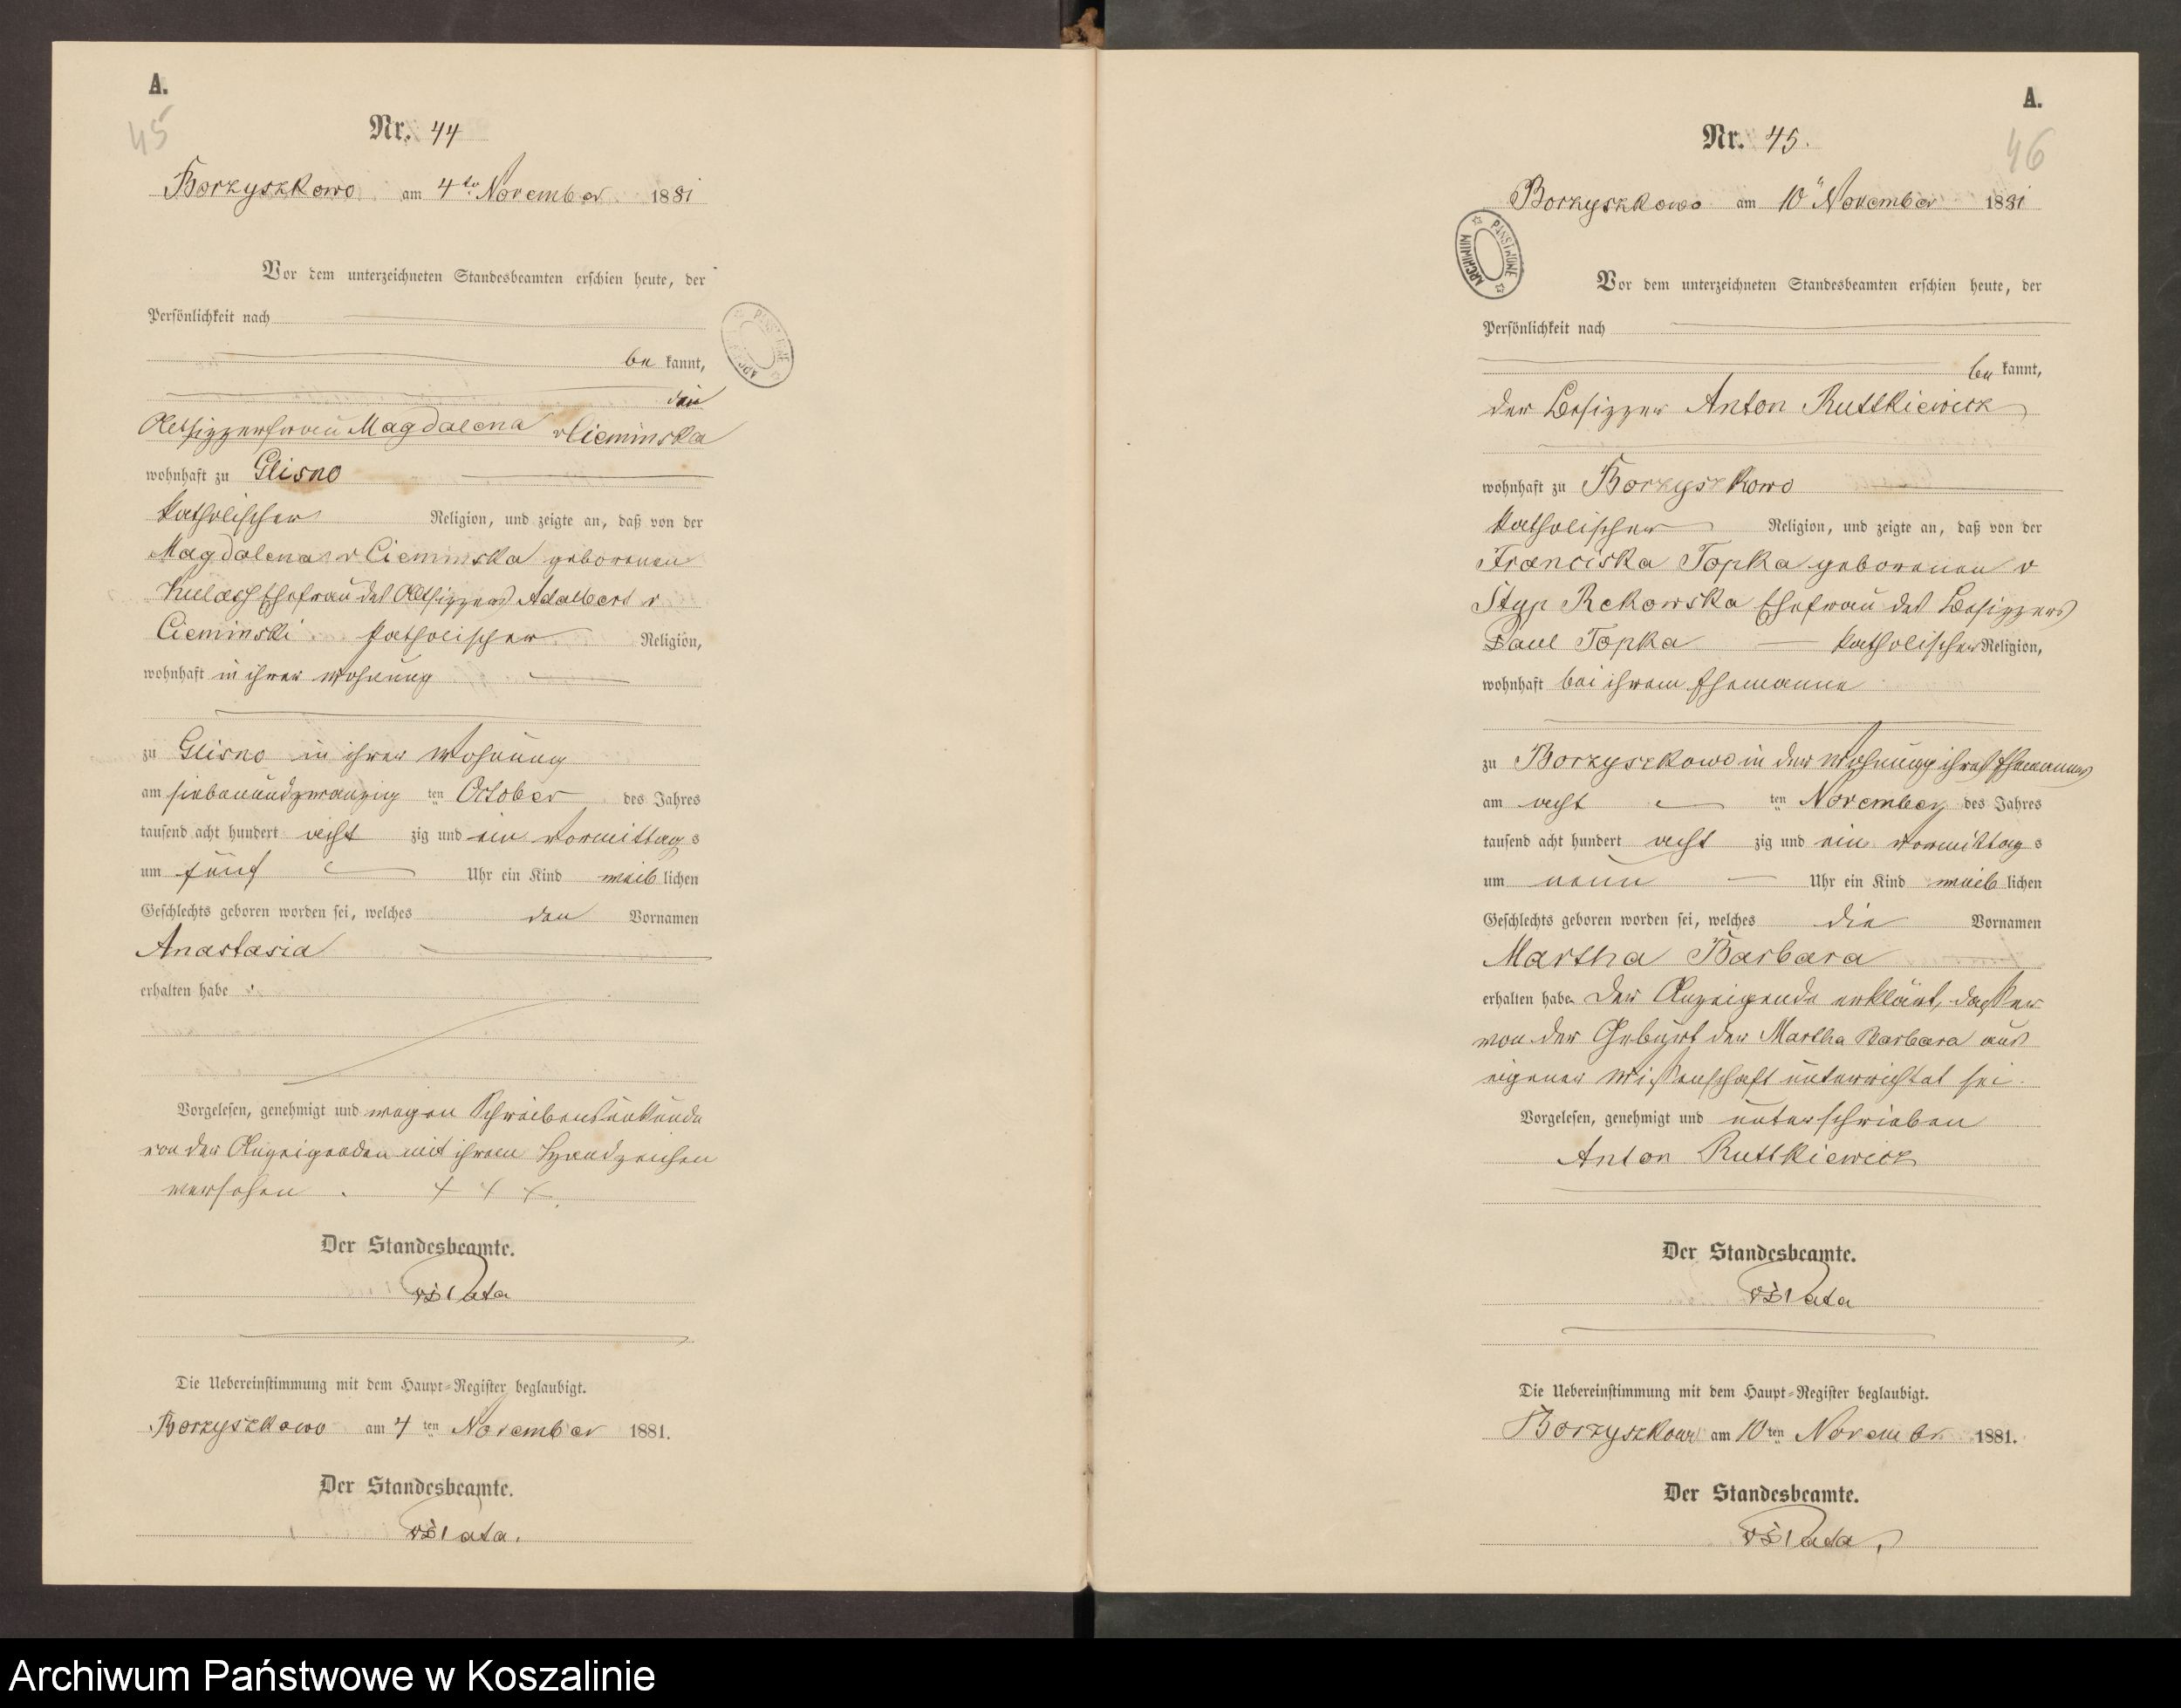 A.
45
Nr. 44
Borzyszkowo am 4te November 1881
Vor dem unterzeichneten Standesbeamten erschien heute, der
Persönlichkeit nach
be kannt,
die
Altsitzerfrau Magdalena v Cieminska
wohnhaft zu Glisno
katholischer Religion, und zeigte an, daß von der
Magdalena v Cieminska geborenen
Ehefrau des Altsitzers Adalbert v
Cieminski katholischer Religion,
wohnhaft in ihrer Wohnung
zu Glisno in ihrer Wohnung
am siebenundzwanzig ten October des Jahres
tausend acht hundert acht zig und ein Vormittag s
um fünf Uhr ein Kind weib lichen
Geschlechts geboren worden sei, welches den Vornamen
Anastasia
erhalten habe
Vorgelesen, genehmigt und wegen Schreibensunkunde
von der Anzeigenden mit ihrem Handzeichen
versehen. + + +
Der Standesbeamte.
Die Uebereinstimmung mit dem Haupt-Register beglaubigt.
Borzyszkowo am 4 ten November 1881.
Der Standesbeamte.
A.
46
Nr. 45.
Borzyszkowo am 10" November 1881
ARCHIWUM PAŃSTWOWE
Vor dem unterzeichneten Standesbeamten erschien heute, der
Persönlichkeit nach
be kannt,
der Besitzer Anton Ruttkiewicz
wohnhaft zu Borzyszkowo
katholischer Religion, und zeigte an, daß von der
Franciska Topka geborenen v
Styp Rekowska Ehefrau des Besitzers
Paul Topka katholischer Religion,
wohnhaft bei ihrem Ehemanne
zu Borzyszkowo in der Wohnung ihres Ehemannes
am acht ten November des Jahres
tausend acht hundert acht zig und ein Vormittag s
um neun Uhr ein Kind weib lichen
Geschlechts geboren worden sei, welches die Vornamen
Martha Barbara
erhalten habe. Der Anzeigende erklärt, daß er
von der Geburt der Martha Barbara aus
eigener Wißenschaft unterrichtet sei.
Vorgelesen, genehmigt und unterschrieben
Anton Ruttkiewicz
Der Standesbeamte.
Die Uebereinstimmung mit dem Haupt-Register beglaubigt.
Borzyszkowo am 10 ten Novembr 1881.
Der Standesbeamte.
Archiwum Państwowe w Koszalinie